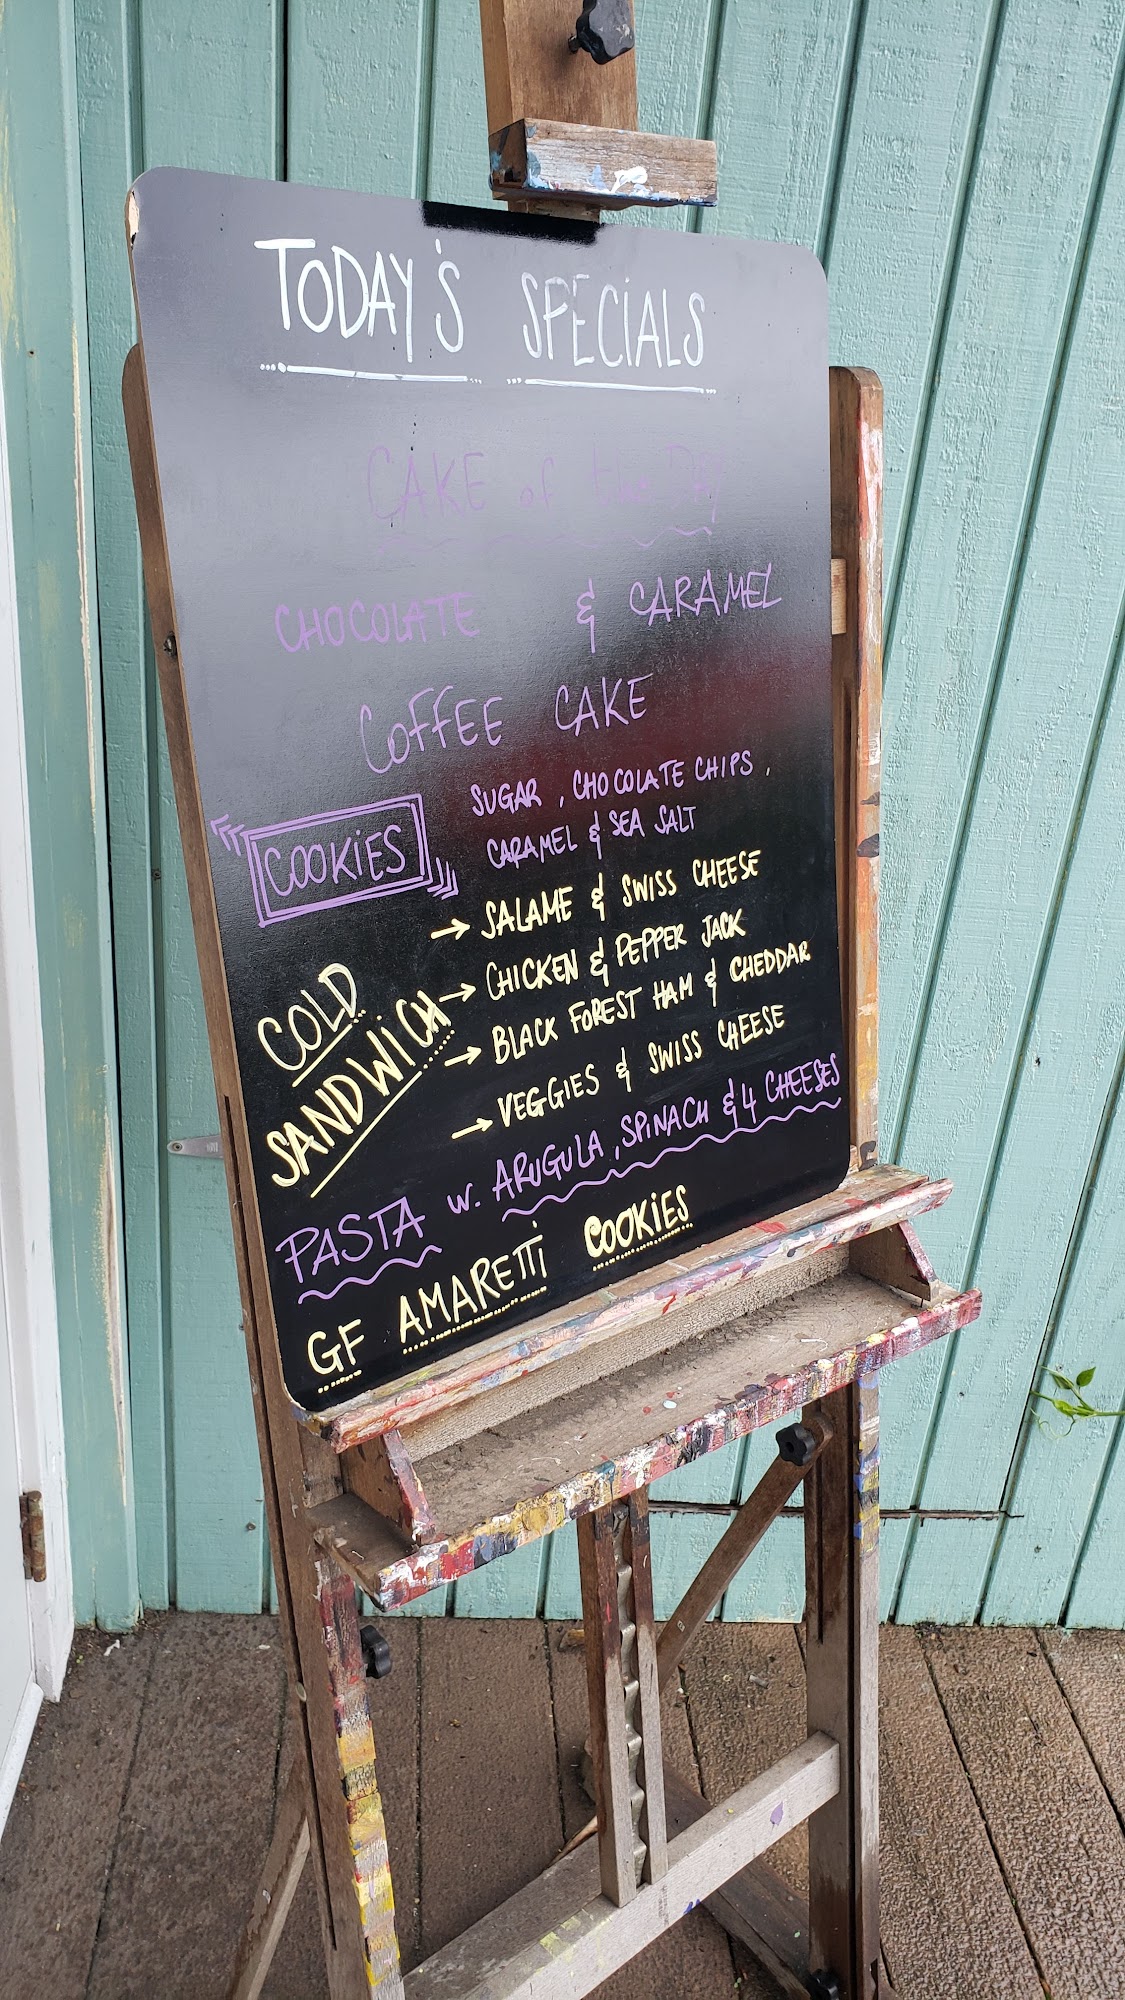 TODAY'S SPECIALS
CAKE of the DAY
CHOCOLATE & CARAMEL
COFFEE CAKE
COOKIES
SUGAR, CHOCOLATE CHIPS,
CARAMEL & SEA SALT
COLD
SANDWICH
→ SALAME & SWISS CHEESE
→ CHICKEN & PEPPER JACK
→ BLACK FOREST HAM & CHEDDAR
→ VEGGIES & SWISS CHEESE
PASTA w. ARUGULA, SPINACH & 4 CHEESES
GF AMARETTI COOKIES